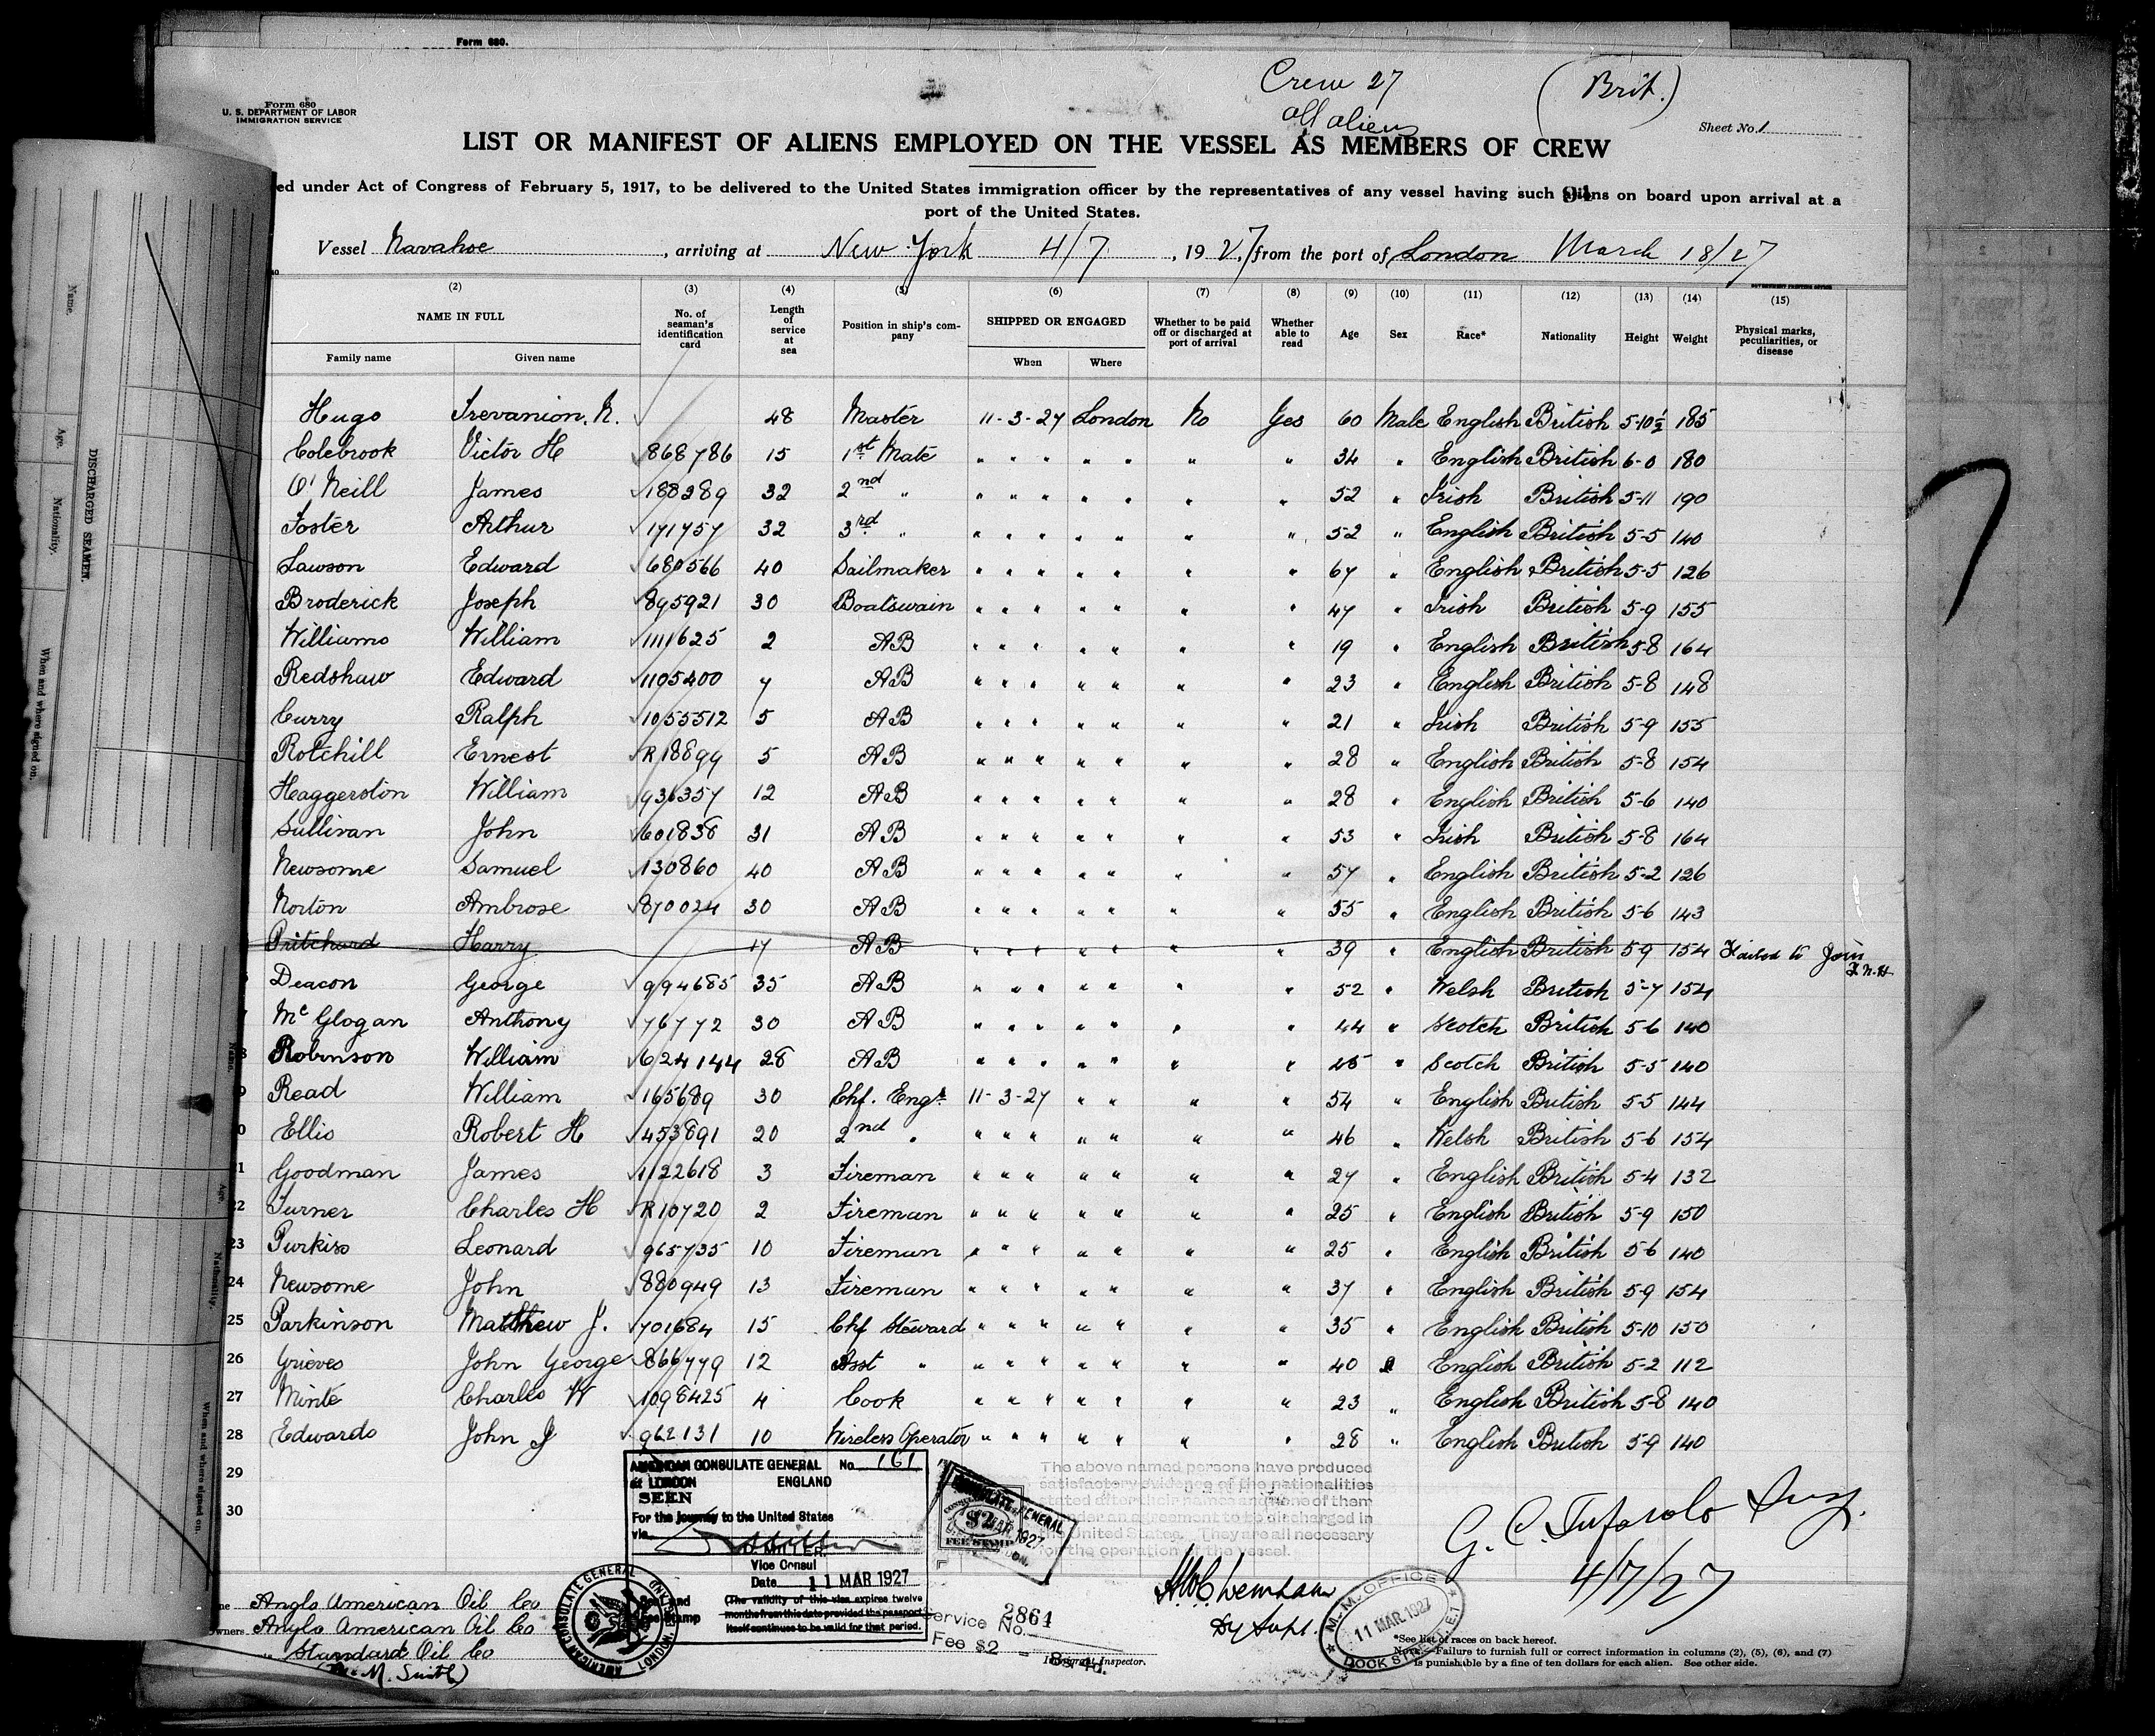 Form 680.
Crew 27
all aliens
(Brit.)
Form 680
U. S. DEPARTMENT OF LABOR
IMMIGRATION SERVICE
Sheet No. 1
LIST OR MANIFEST OF ALIENS EMPLOYED ON THE VESSEL AS MEMBERS OF CREW
ed under Act of Congress of February 5, 1917, to be delivered to the United States immigration officer by the representatives of any vessel having such aliens on board upon arrival at a
port of the United States.
Vessel Navahoe, arriving at New York 4/7, 1927, from the port of London March 18/27
(2) (3) (4) (5) (6) (7) (8) (9) (10) (11) (12) (13) (14) (15)
NAME IN FULL No. of seaman's identification card Length of service at sea Position in ship's company SHIPPED OR ENGAGED Whether to be paid off or discharged at port of arrival Whether able to read Age Sex Race* Nationality Height Weight Physical marks, peculiarities, or disease
Family name Given name When Where
Hugo Trevanion. N. 48 Master 11-3-27 London No Yes 60 Male English British 5-10½ 185
Colebrook Victor H 868786 15 1st Mate " " " " " " " 34 " English British 6-0 180
O'Neill James 188289 32 2nd " " " " " " " " 52 " Irish British 5-11 190
Foster Arthur 171757 32 3rd " " " " " " " " 52 " English British 5-5 140
Lawson Edward 680566 40 Sailmaker " " " " " " " 67 " English British 5-5 126
Broderick Joseph 895921 30 Boatswain " " " " " " " 47 " Irish British 5-9 155
Williams William 1111625 2 AB " " " " " " " 19 " English British 5-8 164
Redshaw Edward 1105400 7 AB " " " " " " " 23 " English British 5-8 148
Curry Ralph 1055512 5 AB " " " " " " " 21 " Irish British 5-9 155
Rotchill Ernest R18899 5 AB " " " " " " " 28 " English British 5-8 154
Haggerston William 936357 12 AB " " " " " " " 28 " English British 5-6 140
Sullivan John 601836 31 AB " " " " " " " 53 " Irish British 5-8 164
Newsome Samuel 130860 40 AB " " " " " " " 57 " English British 5-2 126
Norton Ambrose 870024 30 AB " " " " " " " 55 " English British 5-6 143
Pritchard Harry 17 AB " " " " " " " 39 " English British 5-9 154 Failed to Join T.N.H.
Deacon George 994685 35 AB " " " " " " " 52 " Welsh British 5-7 154
McGlogan Anthony 76772 30 AB " " " " " " " 44 " Scotch British 5-6 140
Robinson William 624144 28 AB " " " " " " " 45 " Scotch British 5-5 140
Read William 165689 30 Chf. Engr. 11-3-27 " " " " 54 " English British 5-5 144
Ellis Robert H 453891 20 2nd " " " " " " " " 46 " Welsh British 5-6 154
Goodman James 1122618 3 Fireman " " " " " " " 27 " English British 5-4 132
22 Turner Charles H R10720 2 Fireman " " " " " " " 25 " English British 5-9 150
23 Purkiss Leonard 965735 10 Fireman " " " " " " " 25 " English British 5-6 140
24 Newsome John 880949 13 Fireman " " " " " " " 37 " English British 5-9 154
25 Parkinson Matthew J. 701684 15 Chf Steward " " " " " " " 35 " English British 5-10 150
26 Grieves John George 866779 12 Asst " " " " " " " " 40 " English British 5-2 112
27 Minte Charles W 1098425 4 Cook " " " " " " " 23 " English British 5-8 140
28 Edwards John J 962131 10 Wireless Operator " " " " " " " 28 " English British 5-9 140
29
30
AMERICAN CONSULATE GENERAL No. 161
at LONDON ENGLAND
SEEN
For the journey to the United States
via
D. MILLER
Vice Consul
Date 11 MAR 1927
Seal and Fee Stamp
(The validity of this visa expires twelve
months from this date provided the passport
itself continues to be valid for that period.
AMERICAN CONSULATE GENERAL LONDON ENGLAND
CONSULATE GENERAL
$2
MAR. 1927
FEE STAMP
The above named persons have produced
satisfactory evidence of the nationalities
stated after their names and none of them
under an agreement to be discharged in
the United States. They are all necessary
for the operation of the vessel.
Service No. 2864
Fee $2 = 8s. 4d.
Immigrant Inspector.
Dy Supt.
M.M. OFFICE
11 MAR. 1927
DOCK STREET, E.1
G. C. Insp.
4/7/27
Anglo American Oil Co
owners Anglo American Oil Co
Standard Oil Co
(M. Smith)
*See list of races on back hereof.
Note.—Failure to furnish full or correct information in columns (2), (5), (6), and (7)
is punishable by a fine of ten dollars for each alien. See other side.
DISCHARGED SEAMEN.
Name.
Age.
Nationality.
When and where signed on.
Name.
Age.
Nationality.
When and where signed on.